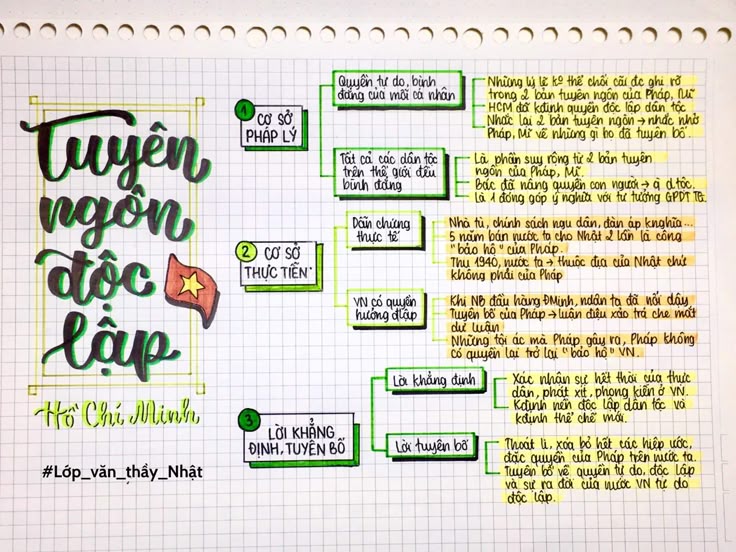 Tuyên
ngôn
độc
lập
Hồ Chí Minh
#Lớp_văn_thầy_Nhật
1
CƠ SỞ
PHÁP LÝ
Quyền tự do, bình
đẳng của mỗi cá nhân
Những lý lẽ ko thể chối cãi đc ghi rõ
trong 2 bản tuyên ngôn của Pháp, Mĩ
HCM đã kđịnh quyền độc lập dân tộc
Nhắc lại 2 bản tuyên ngôn → nhắc nhở
Pháp, Mĩ về những gì họ đã tuyên bố.
Tất cả các dân tộc
trên thế giới đều
bình đẳng
Là phần suy rộng từ 2 bản tuyên
ngôn của Pháp, Mĩ.
Bác đã nâng quyền con người → q d.tộc.
Là 1 đóng góp ý nghĩa với tư tưởng GPDT TG.
2
CƠ SỞ
THỰC TIỄN
Dẫn chứng
thực tế
Nhà tù, chính sách ngu dân, đàn áp knghĩa...
5 năm bán nước ta cho Nhật 2 lần là công
"bảo hộ" của Pháp.
Thu 1940, nước ta → thuộc địa của Nhật chứ
không phải của Pháp
VN có quyền
hưởng đlập
Khi NB đầu hàng ĐMinh, ndân ta đã nổi dậy
Tuyên bố của Pháp → luận điệu xảo trá che mắt
dư luận
Những tội ác mà Pháp gây ra, Pháp không
có quyền lại trở lại "bảo hộ" VN.
3
LỜI KHẲNG
ĐỊNH, TUYÊN BỐ
Lời khẳng định
Xác nhận sự hết thời của thực
dân, phát xít, phong kiến ở VN.
Kđịnh nền độc lập dân tộc và
kđịnh thể chế mới.
Lời tuyên bố
Thoát li, xóa bỏ hết các hiệp ước,
đặc quyền của Pháp trên nước ta.
Tuyên bố về quyền tự do, độc lập
và sự ra đời của nước VN tự do
độc lập.